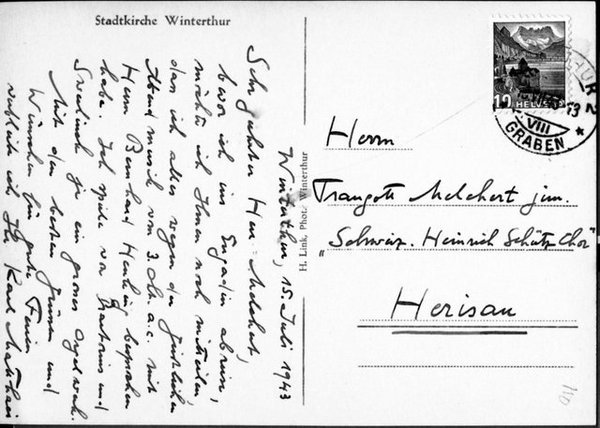 Stadtkirche Winterthur
Winterthur, 15. Juli 1943
Sehr geehrter Herr Melchert,
bevor ich ins Engadin abreise,
möchte ich Ihnen noch mitteilen,
dass ich alles wegen der geistlichen
Abendmusik vom 3. Okt. a.c. mit
Herrn Bernhard Henking besprochen
habe. Ich spiele von Brahms und
Sweelinck je ein grosses Orgelwerk.
Mit den besten Grüssen und
Wünschen für gute Ferien
verbleibe ich Ihr Karl Matthaei
H. Link, Phot., Winterthur
10 HELVETIA
VIII
GRABEN
Herrn
Traugott Melchert jun.
"Schweiz. Heinrich Schütz Chor"
Herisau